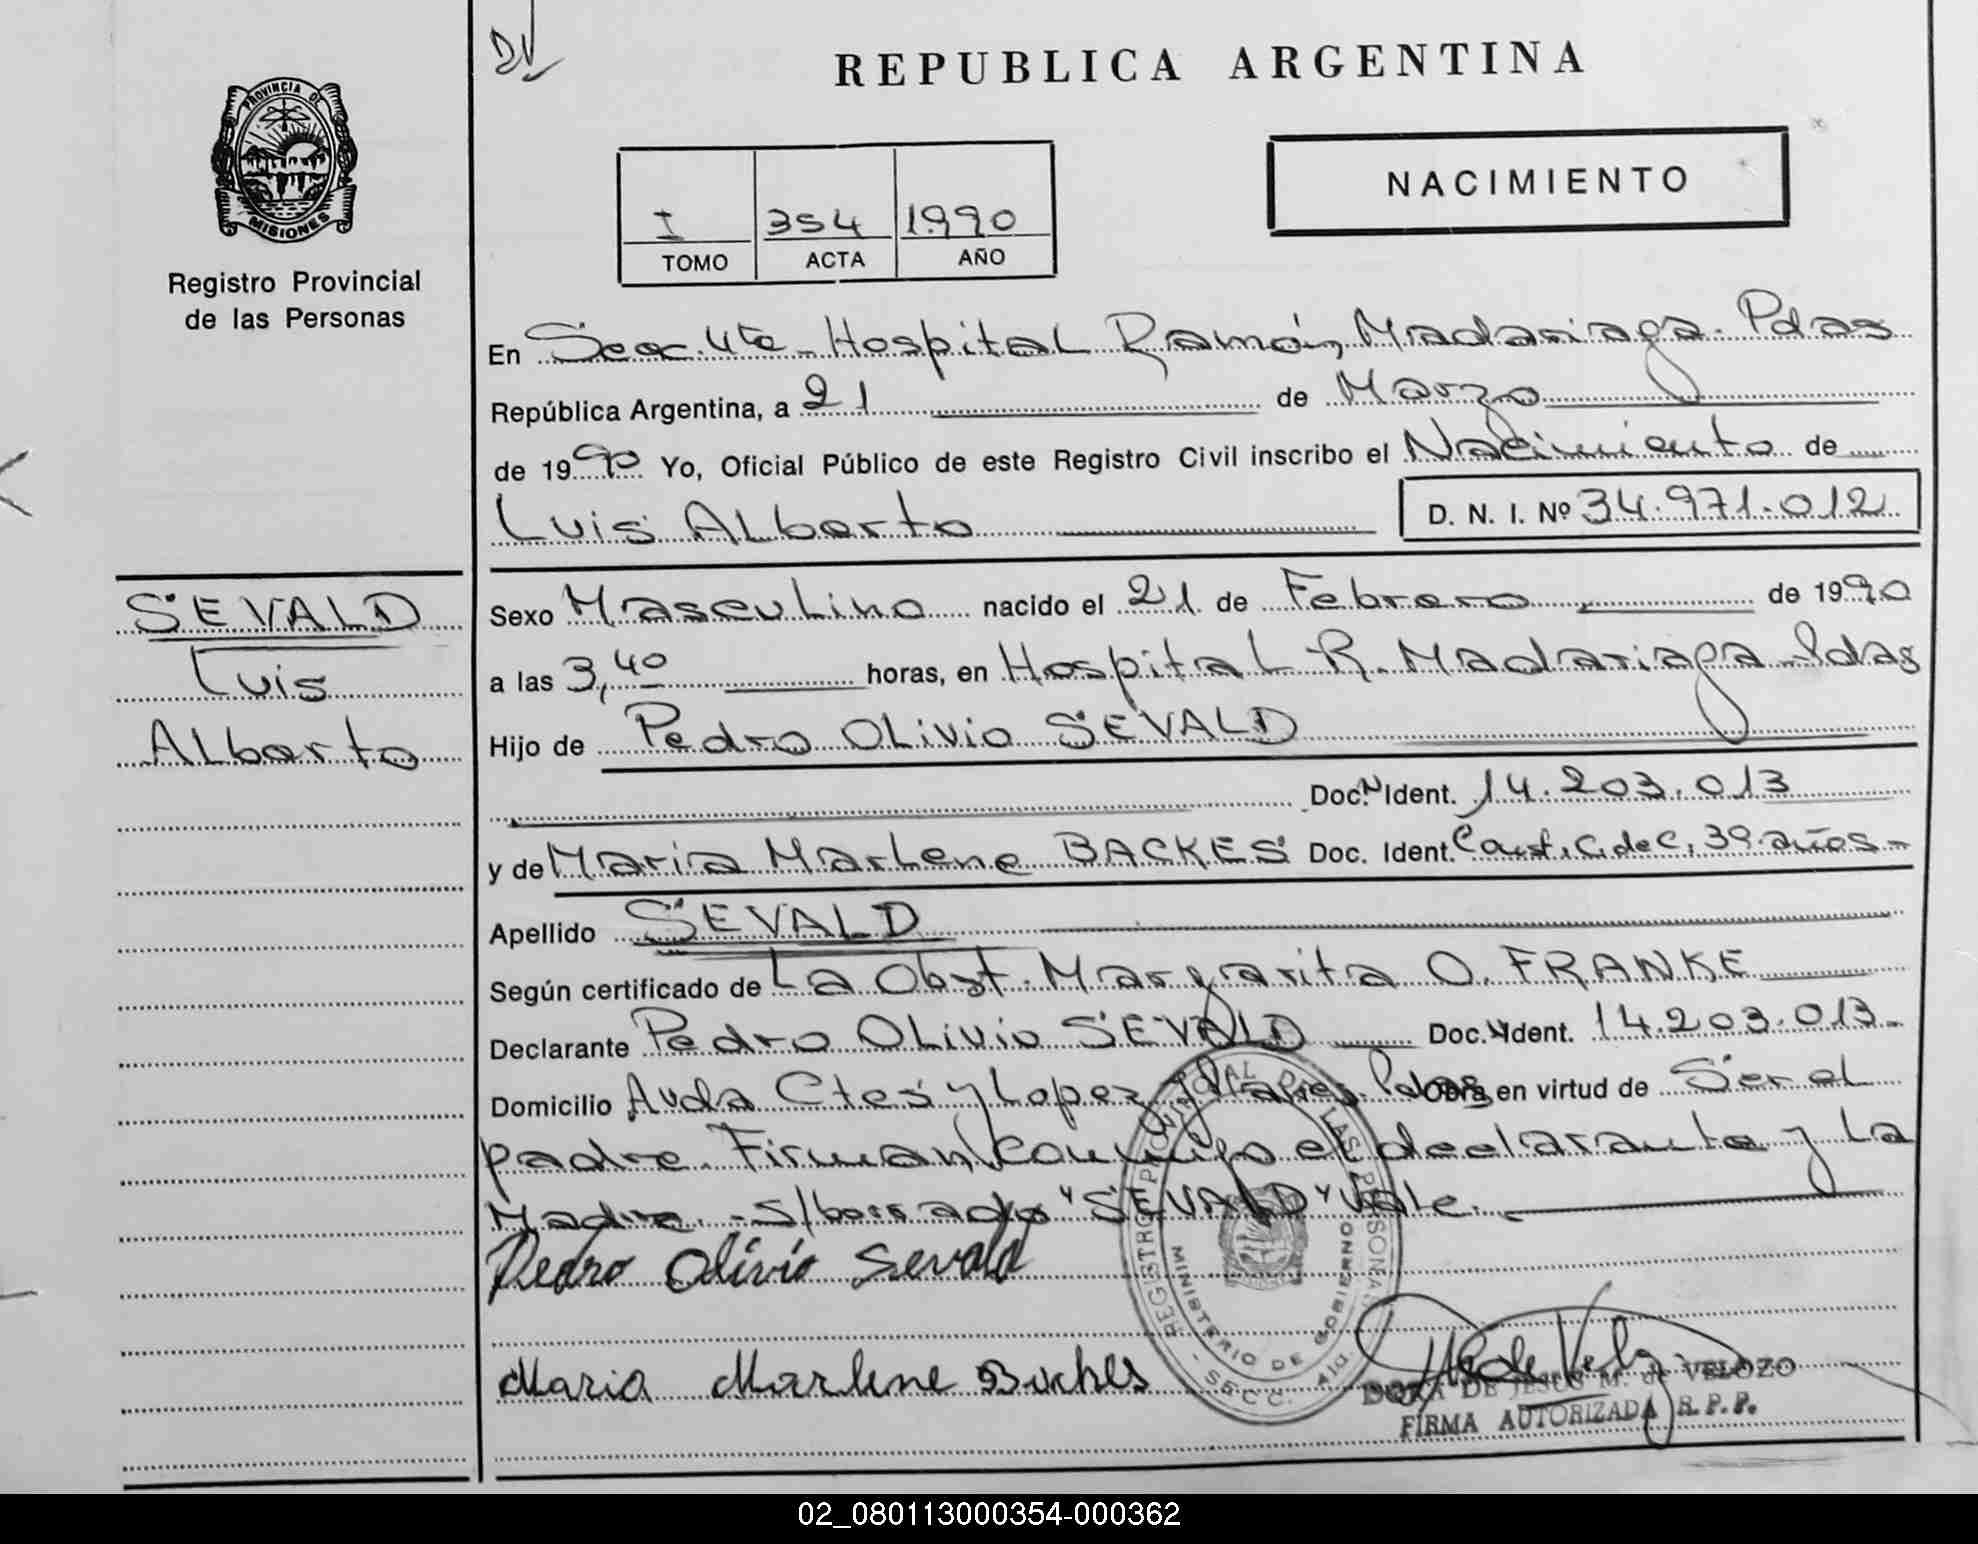 DV
REPUBLICA ARGENTINA
PROVINCIA DE
MISIONES
Registro Provincial
de las Personas
I 354 1990
TOMO ACTA AÑO
NACIMIENTO
En Secc. 4ta - Hospital Ramón Madariaga. Pdas
República Argentina, a 21 de Marzo
de 1990 Yo, Oficial Público de este Registro Civil inscribo el Nacimiento de
Luis Alberto D. N. I. Nº 34.971.012
SEVALD
Luis
Alberto
Sexo Masculino nacido el 21 de Febrero de 1990
a las 3,40 horas, en Hospital R. Madariaga Pdas
Hijo de Pedro Olivio SEVALD
Doc. N Ident. 14.203.013
y de Maria Marlene BACKES Doc. Ident. C. de C, 39 años -
Apellido SEVALD
Según certificado de La Obst. Margarita O. FRANKE
Declarante Pedro Olivio SEVALD Doc. N Ident. 14.203.013 -
Domicilio Avda Ctes y Lopez y Planes. Pdas Obra en virtud de Ser el
padre. Firman conmigo el declarante y La
Madre. - s/borrado "SEVALD" Vale.
Pedro Olivio Sevald
Maria Marlene Backes
REGISTRO PROVINCIAL DE LAS PERSONAS
MINISTERIO DE GOBIERNO
- SECC. 4ta. -
DORA DE JESUS M. de VELOZO
FIRMA AUTORIZADA R. P. P.
02_080113000354-000362